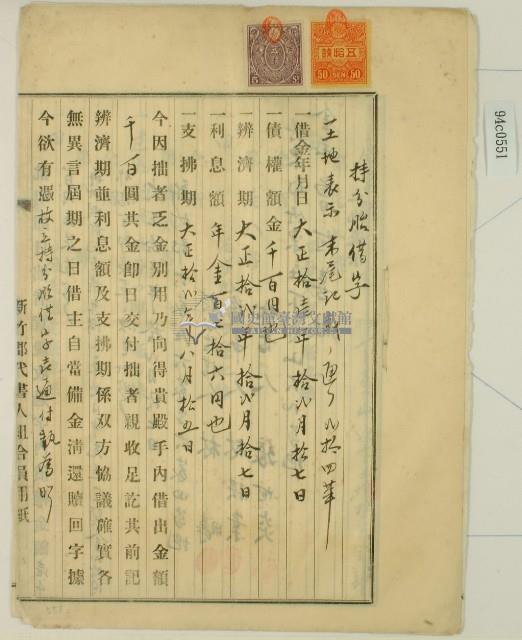 持分胎借字
土地表示 末尾記
拾四筆
一借金年月日 大正拾壹年拾貳月拾七日
一債權額 金千百圓也
一辨濟期 大正拾貳年拾貳月拾七日
一利息額 年金百七拾六円也
一支拂期 大正拾貳年八月拾五日
今因拙者乏金別用乃向得貴殿手內借出金額
千百圓其金卽日交付拙者親收足訖其前記
辨濟期並利息額及支拂期係双方協議確實各
無異言屆期之日借主自當備金淸還贖回字據
今欲有憑故立持分胎借字壹通付執為炤
新竹郡代書人組合員用紙
國史館臺灣文獻館
5 Sn
五拾錢
50 SEN 50
94c0551